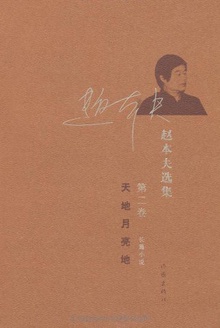 赵本夫
赵本夫选集
第二卷
天地月亮地
长篇小说
作家出版社